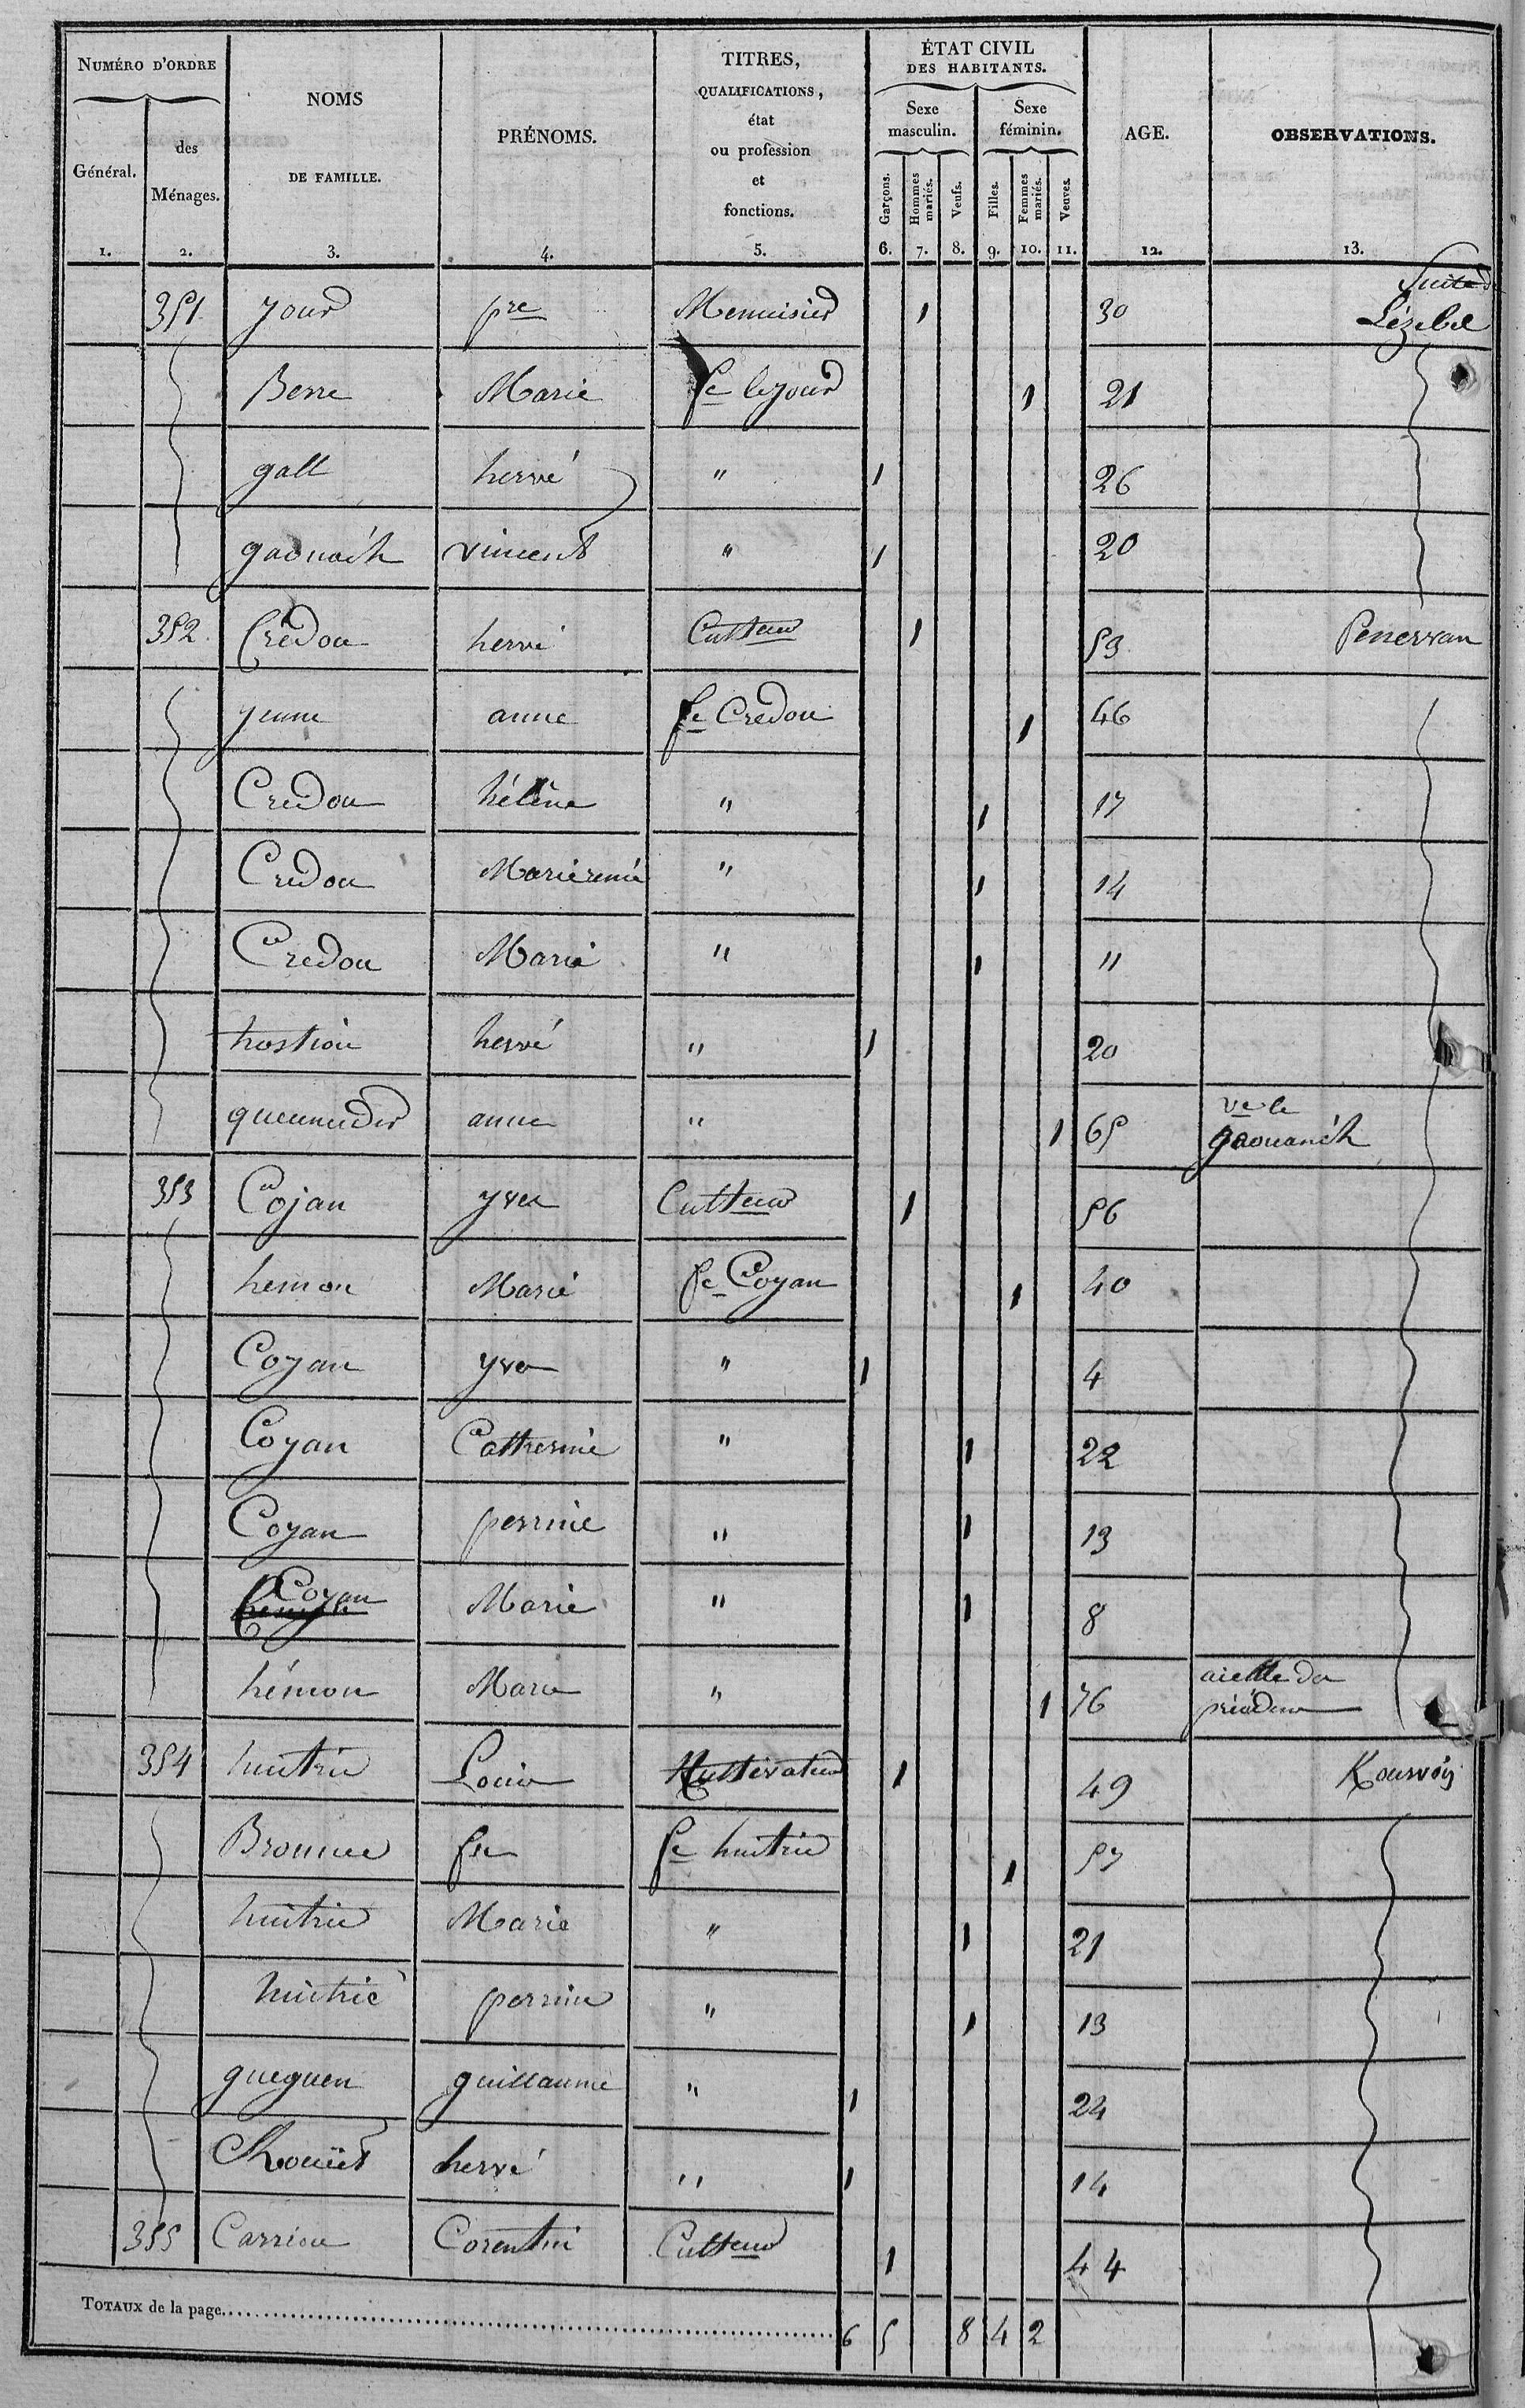 NUMÉRO D'ORDRE
Général.
1.
des
Ménages.
2.
NOMS
DE FAMILLE.
3.
PRÉNOMS.
4.
TITRES,
QUALIFICATIONS,
état
ou profession
et
fonctions.
5.
ÉTAT CIVIL
DES HABITANTS.
Sexe
masculin.
Sexe
féminin.
Garçons.
6.
Hommes
mariés.
7.
Veufs.
8.
Filles.
9.
Femmes
mariés.
10.
Veuves.
11.
AGE.
12.
OBSERVATIONS.
13.
Suite
351 jour pre Menuisier 1 30 Lézebel
Berre Marie fe lejour 1 21
gall hervé " 1 26
gaonach vincent " 1 20
352 Crédou hervé Cultteur 1 53 Penervan
jeune anne fe Credou 1 46
Credou hélène " 1 17
Credou Marie renée " 1 14
Credou Marie " 1 11
hostiou hervé " 1 20
quemeder anne " 1 65 ve le
gaouanch
353 Cojan yves Cultteur 1 56
hemon Marie fe Coyan 1 40
Coyan yves " 1 4
Coyan Catherine " 1 22
Coyan perrine " 1 13
Coyan Marie " 1 8
hémon Marie " 1 76 aieulle des
précédens
354 huitric Louis Cultivateur 1 49 Kourvois
Bronnec fse fe huitric 1 57
huitric Marie " 1 21
huitric perrine " 1 13
gueguen guillaume " 1 24
Chouet hervé " 1 14
355 Carriou Corentin Cultteur 1 44
TOTAUX de la page 6 5 8 4 2